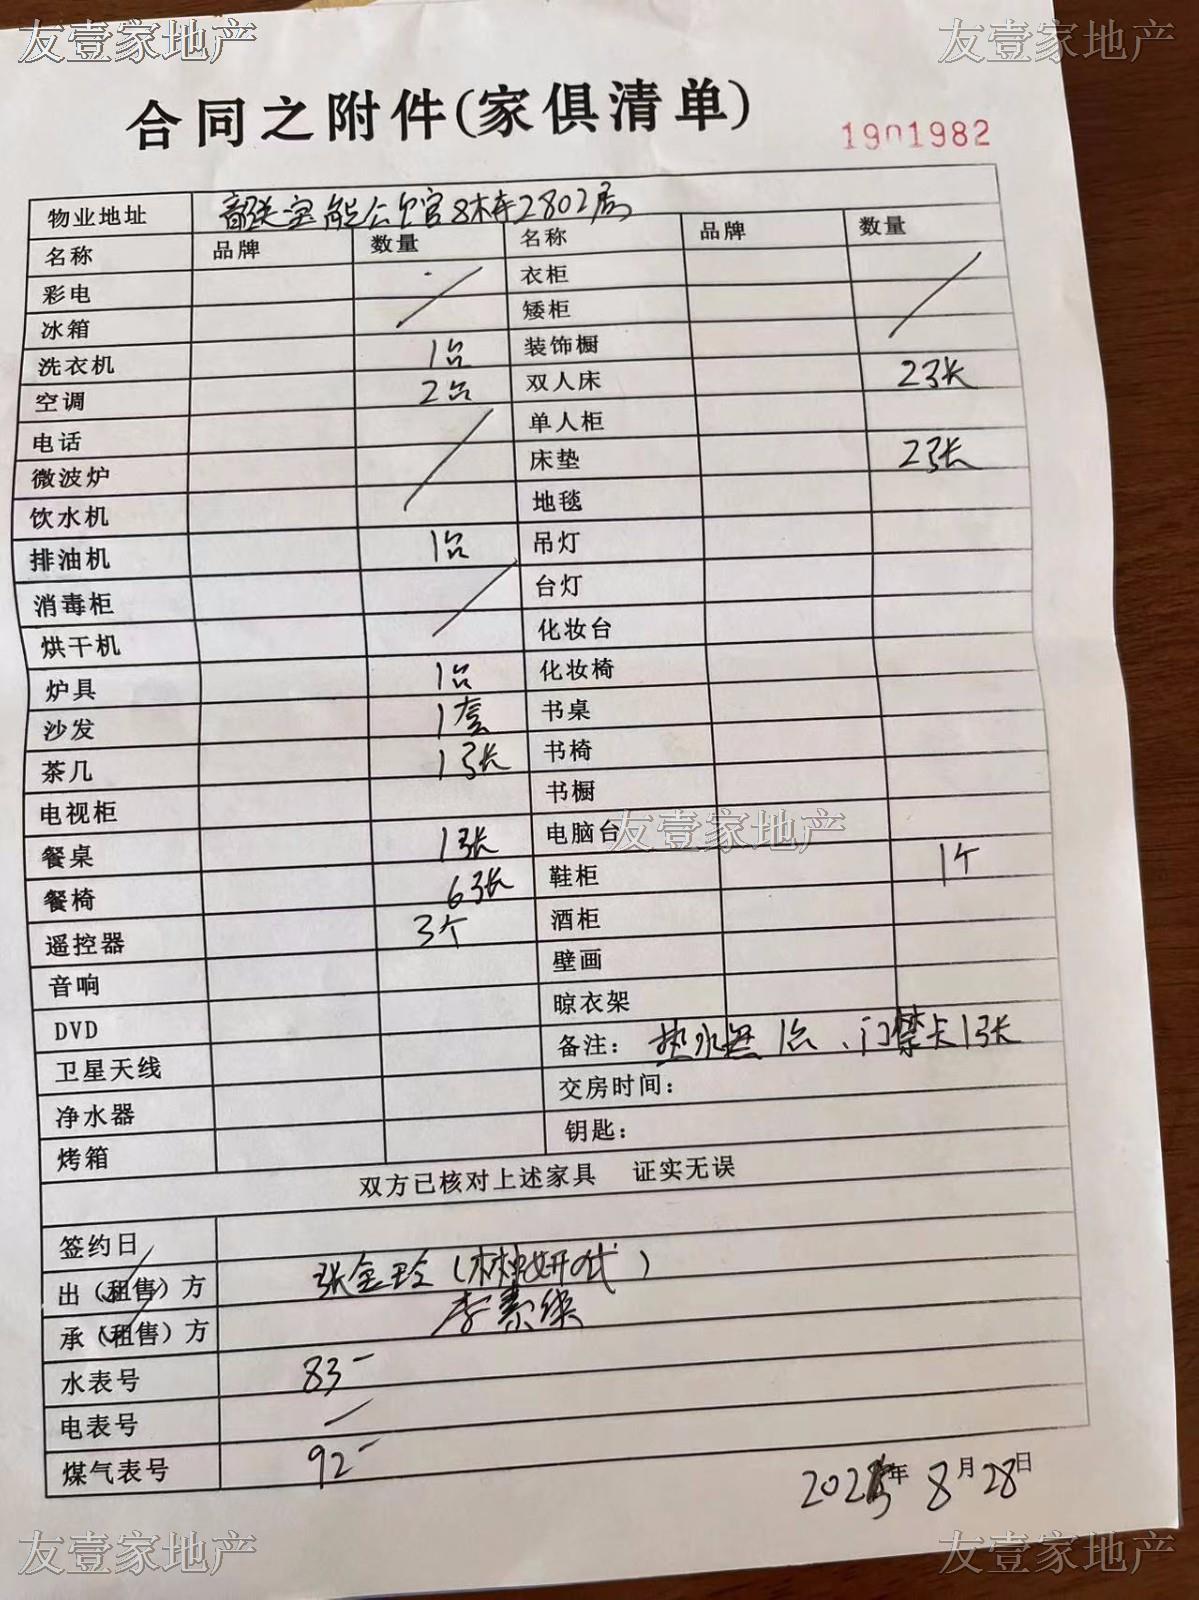 友壹家地产 友壹家地产
合同之附件(家俱清单)
1901982
物业地址 宝能公馆8栋2802房
名称 品牌 数量 名称 品牌 数量
彩电 衣柜
冰箱 矮柜
洗衣机 1台 装饰橱
空调 2台 双人床 2张
电话 单人柜
微波炉 床垫 2张
饮水机 地毯
排油机 1台 吊灯
消毒柜 台灯
烘干机 化妆台
炉具 1台 化妆椅
沙发 1套 书桌
茶几 1张 书椅
电视柜 书橱
餐桌 1张 电脑台
友壹家地产
餐椅 6张 鞋柜 1个
遥控器 3个 酒柜
音响 壁画
DVD 晾衣架
卫星天线 备注： 热水器1台、门禁卡1张
净水器 交房时间：
烤箱 钥匙：
双方已核对上述家具 证实无误
签约日
出（租售）方 张金玲(林妍代)
承（租售）方 李素
水表号 83-
电表号
煤气表号 92-
年8月28日
友壹家地产 友壹家地产